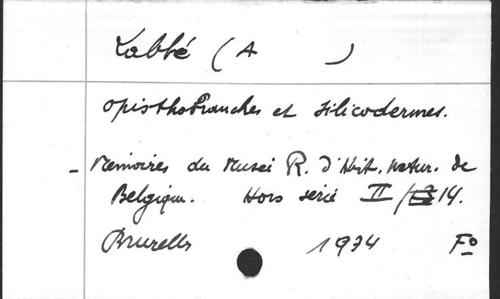 Labbé (A )
Opisthobranches et Silicodermes.
- Memoires du Museé R. d'Hist. Natur. de
Belgique. Hors serie II / 14.
Bruxelles 1934 Fo